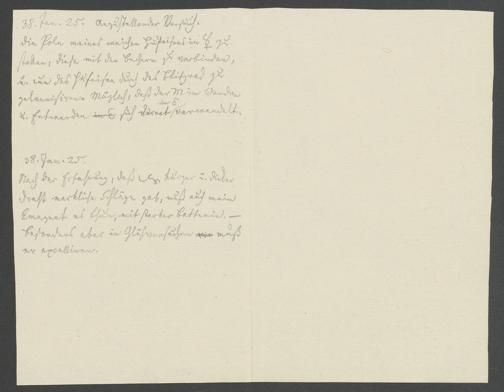 38. Jan. 25. Anzustellender Versuch.
Die Pole meines weichen Hufeisens in ☿ zu
stecken, diese mit den Bechern zu verbinden,
u. nun das Hufeisen durch das Blitzrad zu
galvanisiren. Möglich, daß der M im Wenden
u. sich verwandelt.
38. Jan. 25.
Nach der Erfahrung, daß kurzer u. dicker
Draht merkliche Schläge gab, muß auch mein
Magnet es thun, mit starker Batterie. —
Besonders aber in Glühversuchen muß
er excelliren.